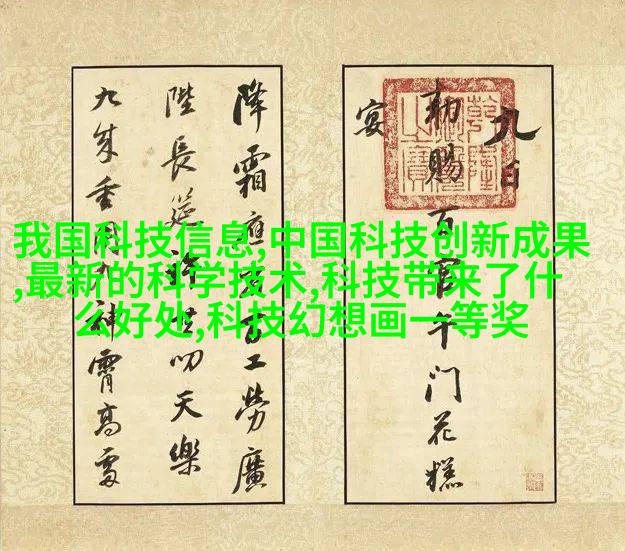 我国科技信息,中国科技创新成果
,最新的科学技术,科技带来了什
么好处,科技幻想画一等奖
九日
勅賜百官午門花糕
宴
降霜應工勞廣
陛長筵叨天樂
九成重神霄高